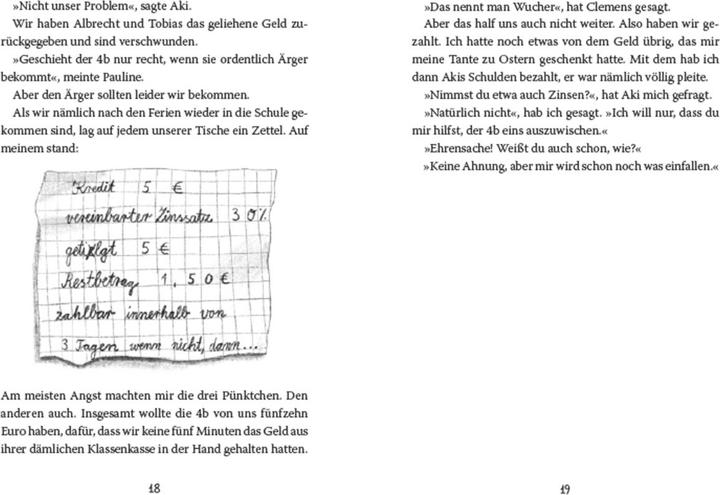 »Nicht unser Problem«, sagte Aki.
Wir haben Albrecht und Tobias das geliehene Geld zu-
rückgegeben und sind verschwunden.
»Geschieht der 4b nur recht, wenn sie ordentlich Ärger
bekommt«, meinte Pauline.
Aber den Ärger sollten leider wir bekommen.
Als wir nämlich nach den Ferien wieder in die Schule ge-
kommen sind, lag auf jedem unserer Tische ein Zettel. Auf
meinem stand:
Kredit 5 €
vereinbarter Zinssatz 30%
getilgt 5 €
Restbetrag 1,50€
zahlbar innerhalb von
3 Tagen wenn nicht, dann...
Am meisten Angst machten mir die drei Pünktchen. Den
anderen auch. Insgesamt wollte die 4b von uns fünfzehn
Euro haben, dafür, dass wir keine fünf Minuten das Geld aus
ihrer dämlichen Klassenkasse in der Hand gehalten hatten.
18
»Das nennt man Wucher«, hat Clemens gesagt.
Aber das half uns auch nicht weiter. Also haben wir ge-
zahlt. Ich hatte noch etwas von dem Geld übrig, das mir
meine Tante zu Ostern geschenkt hatte. Mit dem hab ich
dann Akis Schulden bezahlt, er war nämlich völlig pleite.
»Nimmst du etwa auch Zinsen?«, hat Aki mich gefragt.
»Natürlich nicht«, hab ich gesagt. »Ich will nur, dass du
mir hilfst, der 4b eins auszuwischen.«
»Ehrensache! Weißt du auch schon, wie?«
»Keine Ahnung, aber mir wird schon noch was einfallen.«
19